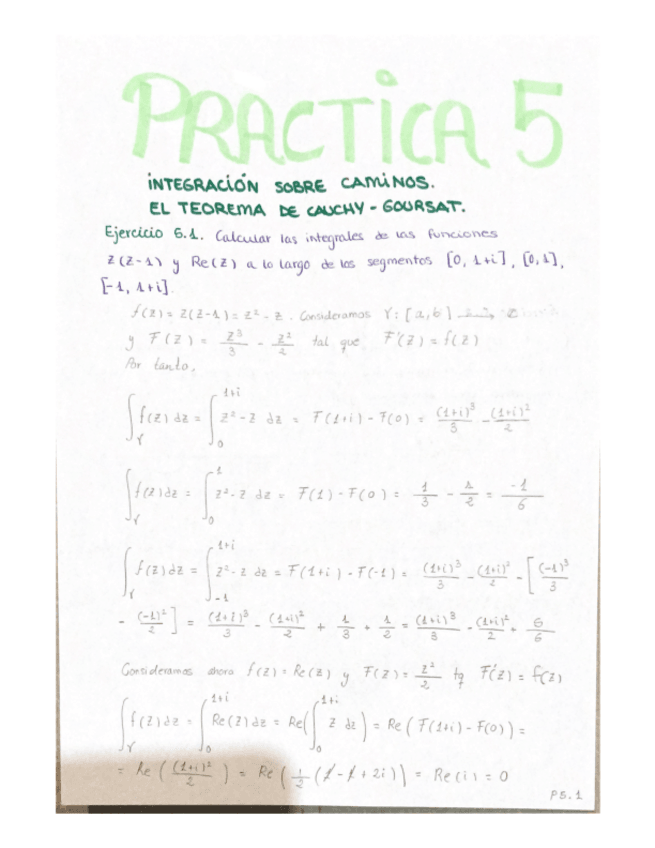 PRACTICA 5
INTEGRACIÓN SOBRE CAMINOS.
EL TEOREMA DE CAUCHY - GOURSAT.
Ejercicio 5.1. Calcular las integrales de las funciones
z(z-1) y Re(z) a lo largo de los segmentos [0, 1+i], [0,1],
[-1, 1+i].
f(z) = z(z-1) = z² - z. Consideramos γ: [a,b]
y F(z) = z³/3 - z²/2 tal que F'(z) = f(z)
Por tanto,
∫_γ f(z) dz = ∫_0^{1+i} z² - z dz = F(1+i) - F(0) = (1+i)³/3 - (1+i)²/2
∫_γ f(z) dz = ∫_0^1 z² - z dz = F(1) - F(0) = 1/3 - 1/2 = -1/6
∫_γ f(z) dz = ∫_{-1}^{1+i} z² - z dz = F(1+i) - F(-1) = (1+i)³/3 - (1+i)²/2 - [(-1)³/3
- (-1)²/2] = (1+i)³/3 - (1+i)²/2 + 1/3 + 1/2 = (1+i)³/3 - (1+i)²/2 + 6/6
Consideramos ahora f(z) = Re(z) y F(z) = z²/2 tq F'(z) = f(z)
∫_γ f(z) dz = ∫_0^{1+i} Re(z) dz = Re(∫_0^{1+i} z dz) = Re(F(1+i) - F(0)) =
= Re((1+i)²/2) = Re(1/2 (1 - 1 + 2i)) = Re(i) = 0
P5.1